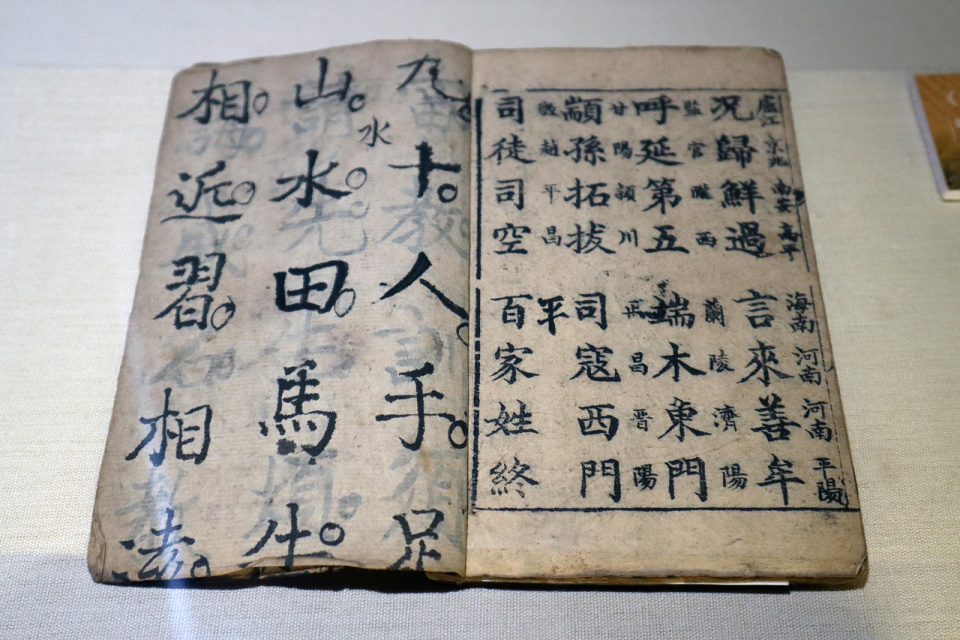 廬江 京兆 南安 高平 海南 河南 河南 平陽
況歸鮮過 言來善牟
官 隴西 蘭陵 濟陽
呼延第五 端木東門
甘陽 潁川 昌 晉陽
顓孫拓拔 司寇西門
趙 平昌 平
司徒司空 百家姓終
九。十。人。手。足
水
山。水。田。馬牛。
相。近。習。相遠。